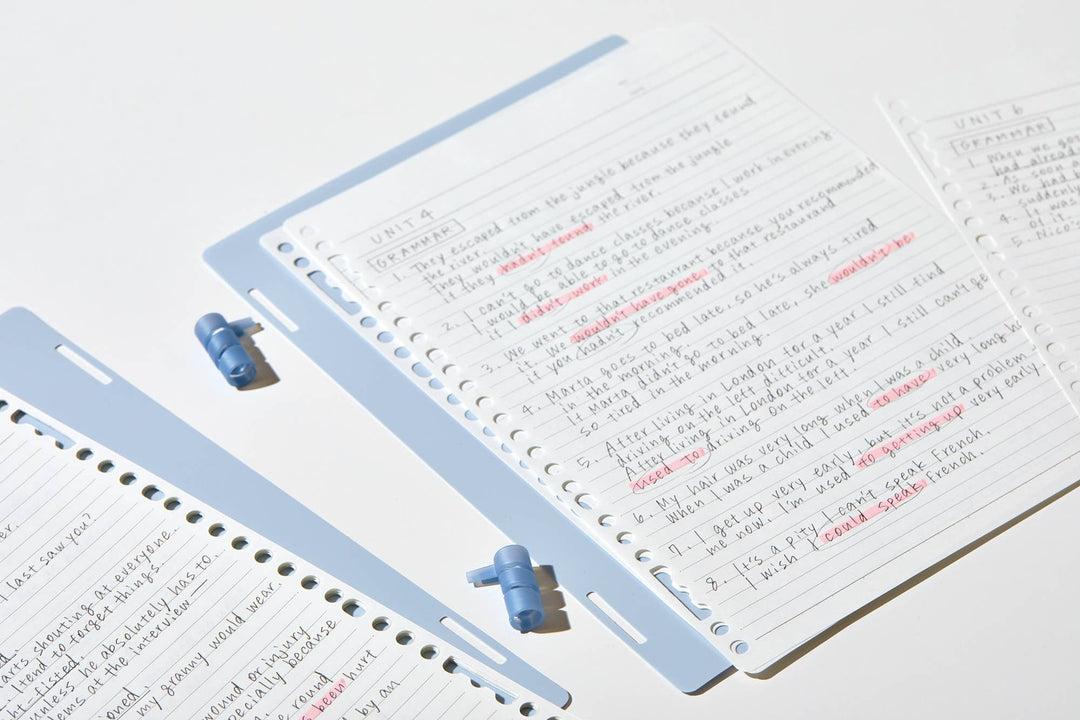 UNIT 4
GRAMMAR
1. They escaped from the jungle because they found
the river.
They wouldn't have escaped from the jungle
if they hadn't found the river.
2. I can't go to dance classes because I work in evening
I would be able to go to dance classes
if I didn't work in the evening.
3. We went to that restaurant because you recommended
it. We wouldn't have gone to that restaurand
if you hadn't recommended it.
4. Marta goes to bed late, so he's always tired
in the morning.
If Marta didn't go to bed late, she wouldn't be
so tired in the morning.
5. After living in London for a year I still find
driving on the left difficult.
After living in London for a year I still can't ge
used to driving on the left.
6. My hair was very long when I was a child
When I was a child I used to have very long h
7. I get up very early, but it's not a problem
me now. I'm used to getting up very early
8. It's a pity I can't speak French.
I wish I could speak French.
UNIT 6
GRAMMAR
1. When we go
had alread
2. As soon a
3. We had b
suddenly
4. It was
of it.
5. Nico's
er.
I last saw you?
d.
arts shouting at everyone.
I tend to forget things.
ht-fisted.
unless he absolutely has to.
lems at the interview
oned.
my granny would wear.
wound or injury
specially because
he round
s been hurt
d by an